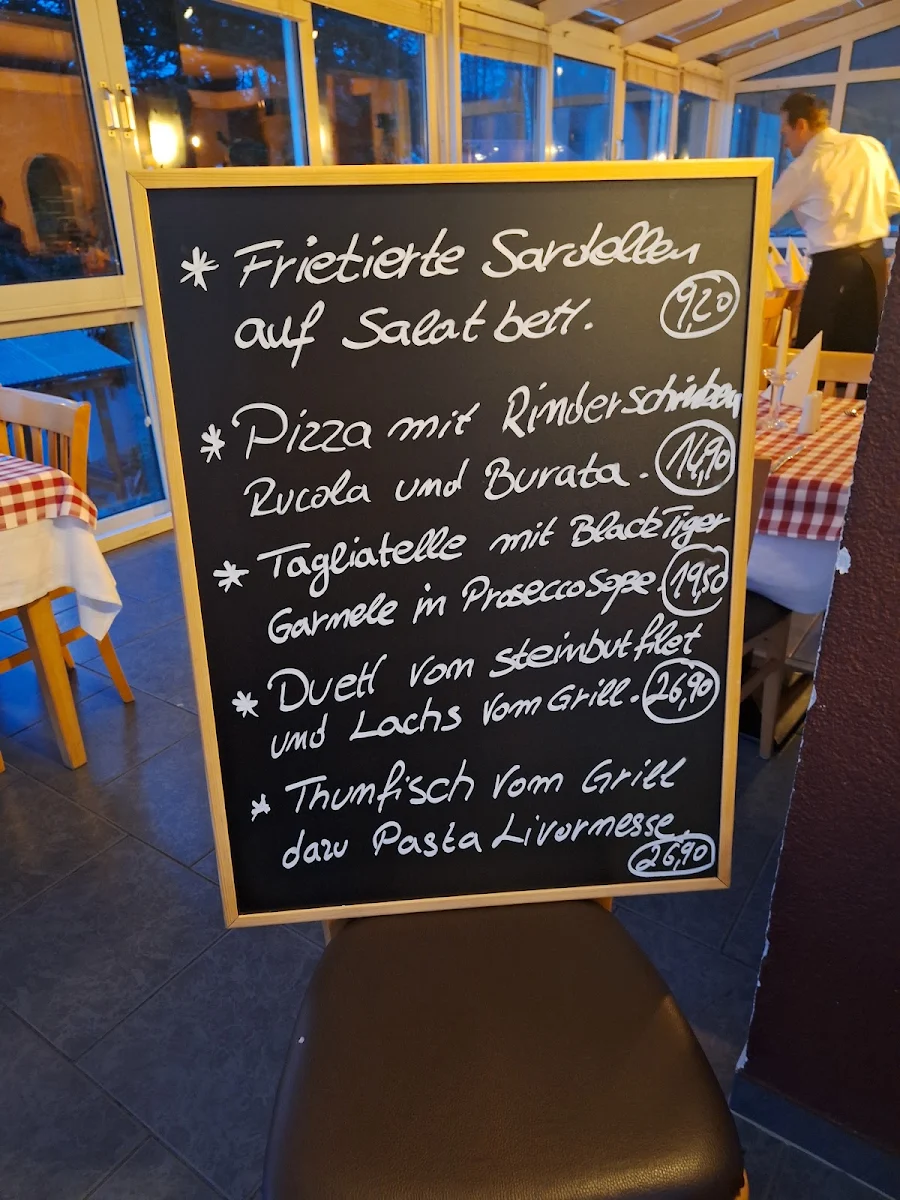 * Frietierte Sardellen
auf Salat bett.
9,20
* Pizza mit Rinderschinken
Rucola und Burata. 14,90
* Tagliatelle mit Black Tiger
Garnele in Prosecco Soße. 19,50
* Duett vom steinbutfilet
und Lachs vom Grill. 26,90
* Thunfisch vom Grill
dazu Pasta Livornesse.
26,90